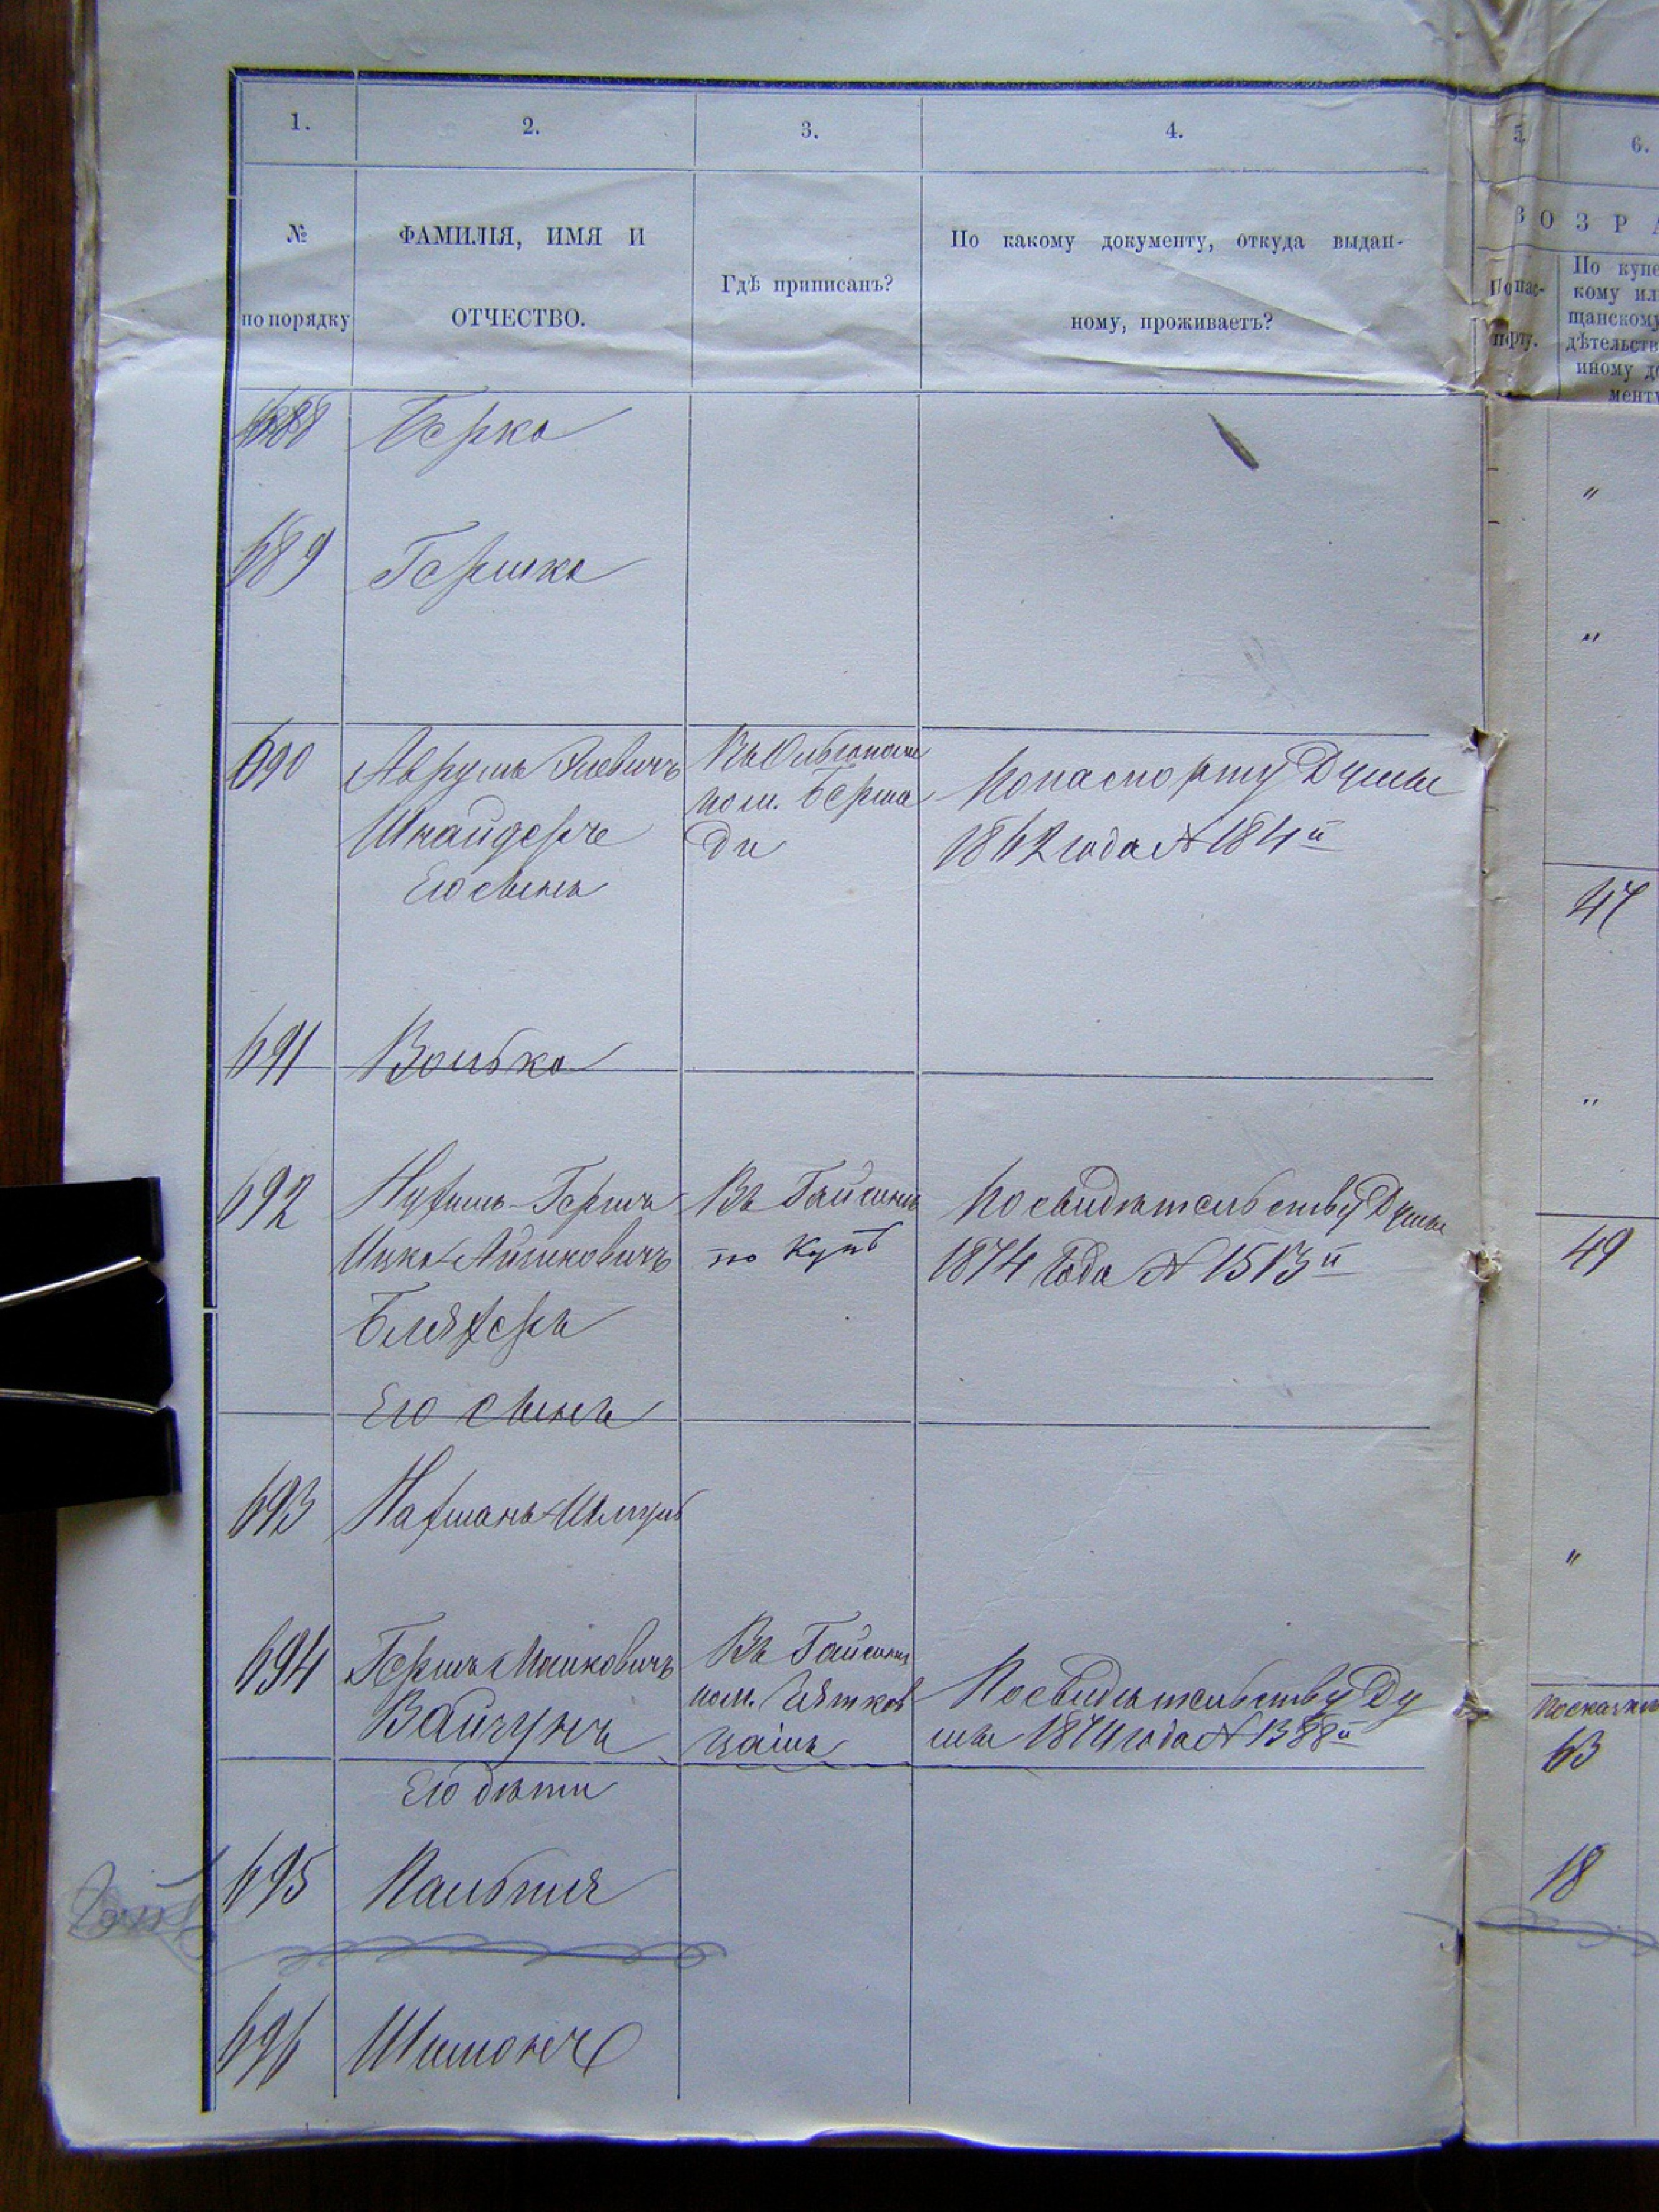 1. 2. 3. 4. 5. 6.
№ по порядку
ФАМИЛІЯ, ИМЯ И
ОТЧЕСТВО.
Гдѣ приписанъ?
По какому документу, откуда выдан-
ному, проживаетъ?
ВОЗРА
По пас-
порту.
По купе
кому ил
щанскому
дѣтельств
иному до
менту
688 Берко
"
689 Гершко
"
690 Аврумъ
Шнайдеръ
Его сынъ
пом. Берша
ди
По паспорту Думы
1862 года № 184й
47
691 Волько
"
692 Нухимъ-Гершъ
Ицко-Айзиковичъ
Бляхеръ
Его сынъ
Въ Гайсинѣ
по куп
По свидѣтельству Думы
1874 года № 1513й
49
693 Нахманъ-Шмуль
"
694 Гершъ Мошковичъ
Вайгунъ
Его дѣти
Въ Гайсинѣ
пом. Цятков
цахъ
По свидѣтельству Ду
мы 1874 года № 1388й
63
695
18
696 Шимонъ